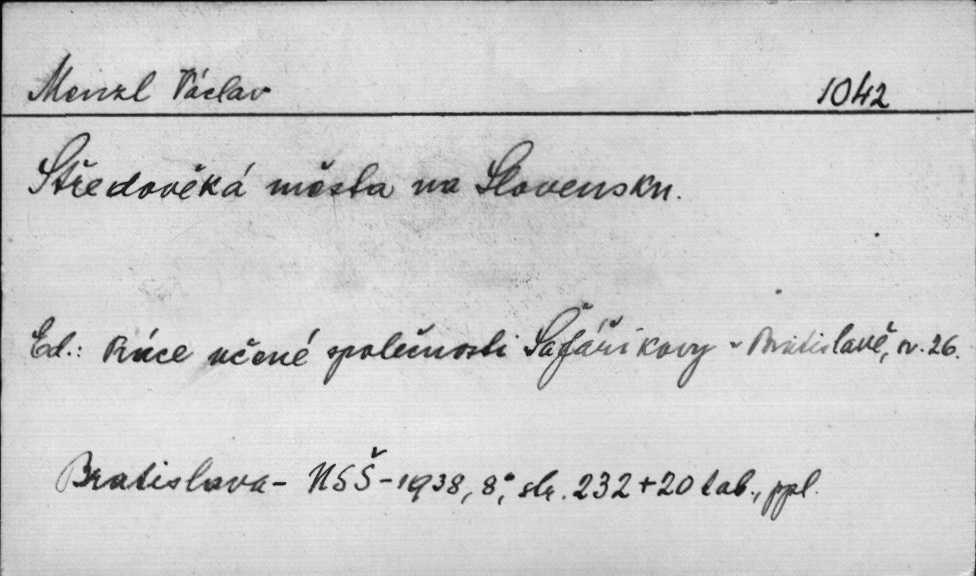 Menzl Václav 1042
Středověká města na Slovensku.
Ed.: Práce učené společnosti Šafaříkovy v Bratislavě, sv. 26.
Bratislava - USŠ - 1938, 8°, str. 232 + 20 tab., ppl.